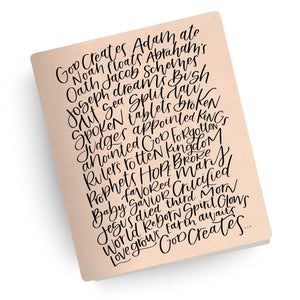 God Creates Adam ate
Noah floats Abraham's
Oath Jacob schemes
Joseph dreams Bush
All Sea Split Law
Spoken tablets broken
Judges appointed KINGS
anointed God Forgotten
Rulers rotten Kingdom
Prophets HOPE BROKE
favored Mary
Baby Savior Crucified
Jesus died third Morn
World Reborn Spirit Glows
Love grows Earth awaits
God Creates...